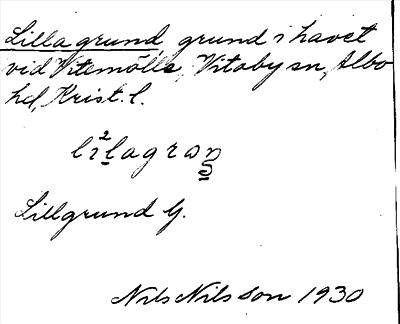 Lillagrund, grund i havet
vid Vitemölla, Vitaby sn, Albo
hd, Krist. l.
Lillgrund G.
Nils Nilsson 1930